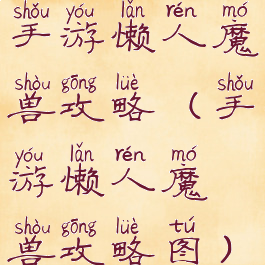 shǒu yóu lǎn rén mó
手游懒人魔
shòu gōng lüè shǒu
兽攻略（手
yóu lǎn rén mó
游懒人魔
shòu gōng lüè tú
兽攻略图）